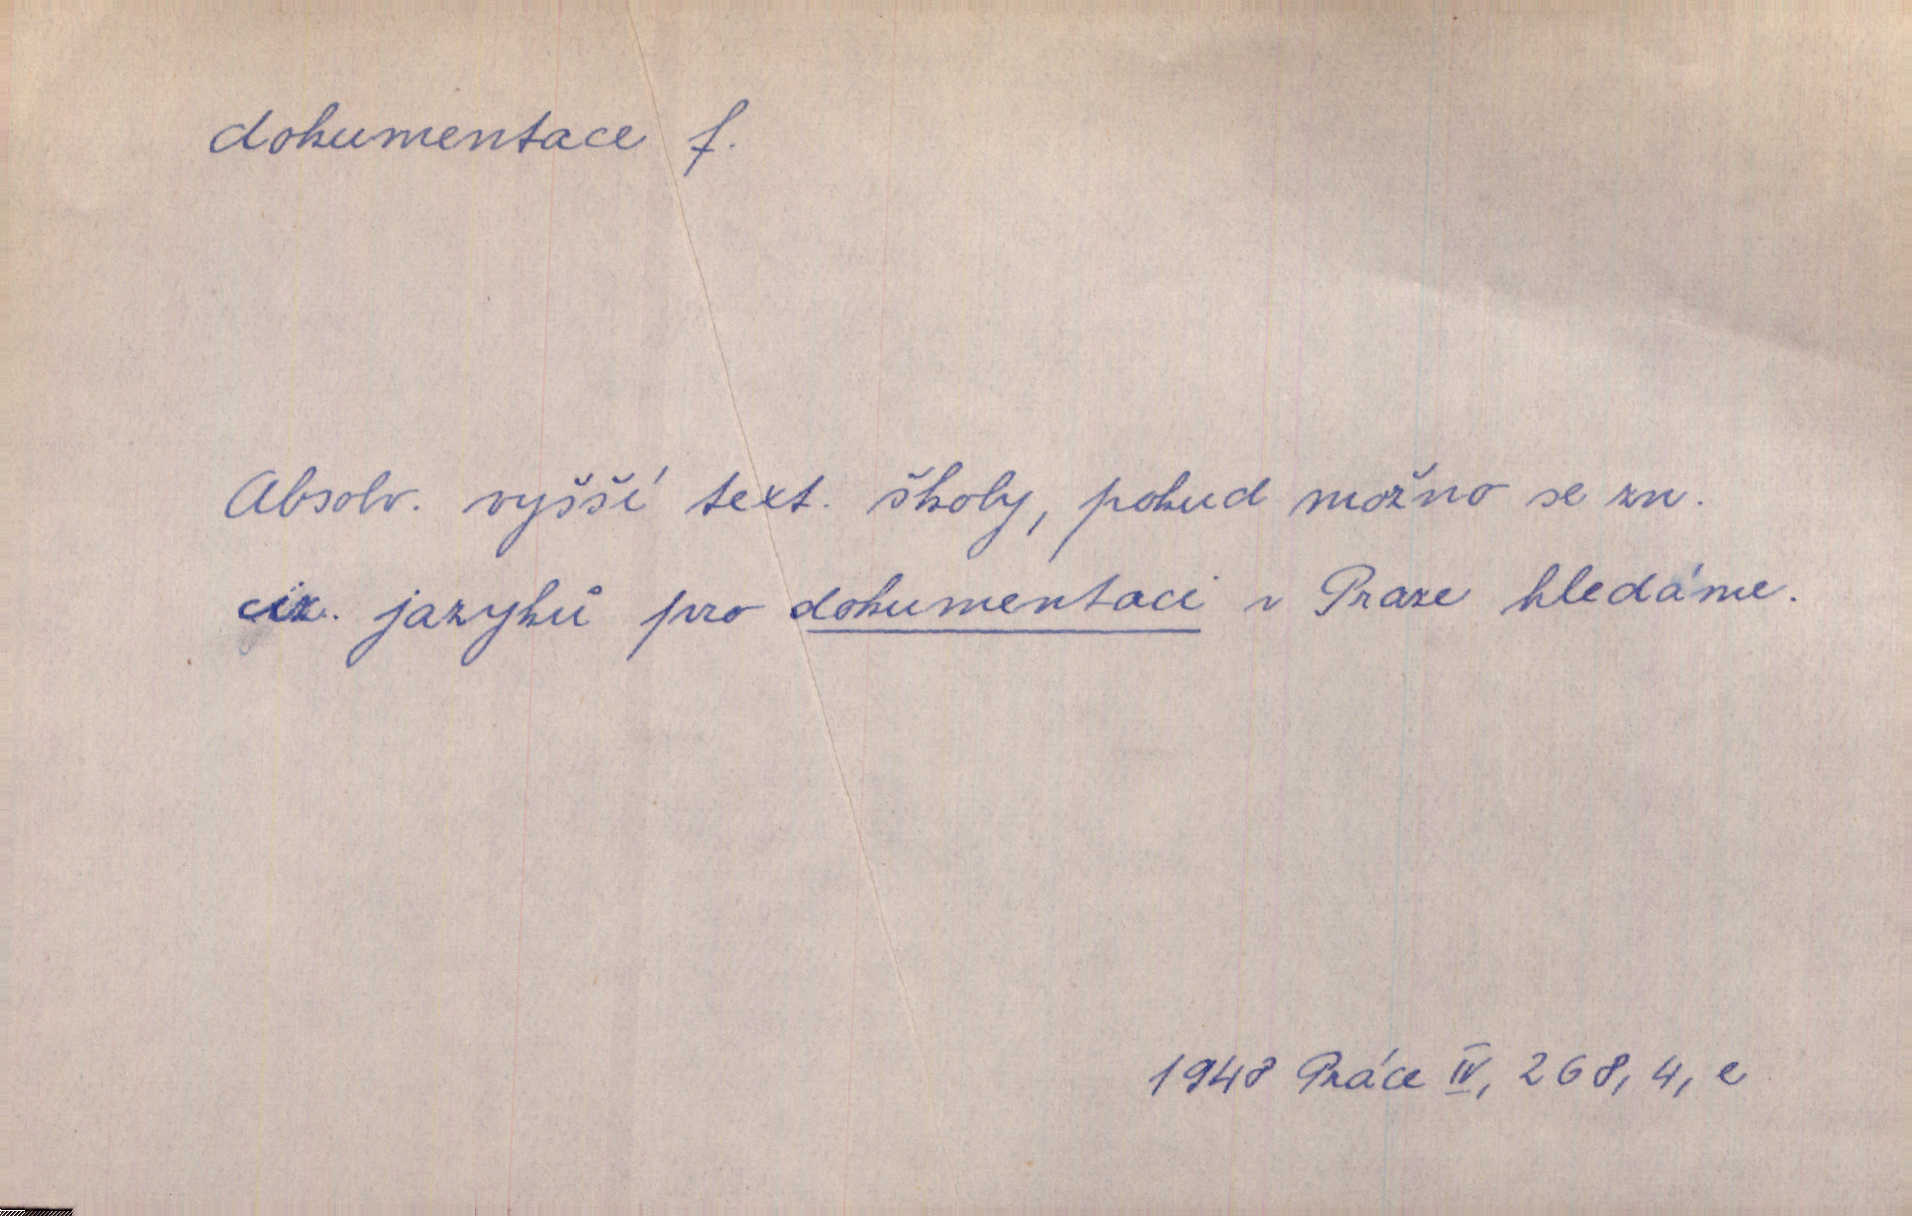 dokumentace f.
Absolv. vyšší text. školy, pokud možno se zn.
ciz. jazyků pro dokumentaci v Praze hledáme.
1948 Práce IV, 268, 4, e